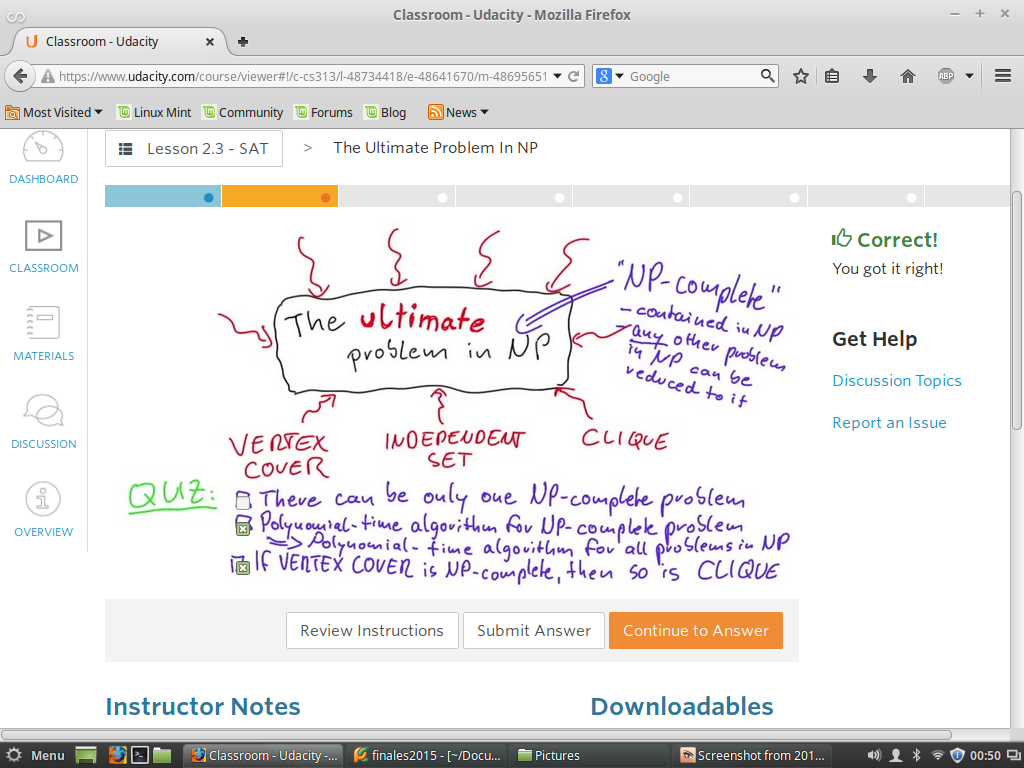 Classroom - Udacity - Mozilla Firefox
Classroom - Udacity
https://www.udacity.com/course/viewer#!/c-cs313/l-48734418/e-48641670/m-48695651
Google
ABP
Most Visited
Linux Mint
Community
Forums
Blog
News
DASHBOARD
CLASSROOM
MATERIALS
DISCUSSION
OVERVIEW
Lesson 2.3 - SAT > The Ultimate Problem In NP
The ultimate
problem in NP
"NP-complete"
- contained in NP
- any other problem
in NP can be
reduced to it
VERTEX
COVER
INDEPENDENT
SET
CLIQUE
QUIZ:
There can be only one NP-complete problem
Polynomial-time algorithm for NP-complete problem
=> Polynomial-time algorithm for all problems in NP
If VERTEX COVER is NP-complete, then so is CLIQUE
Correct!
You got it right!
Get Help
Discussion Topics
Report an Issue
Review Instructions
Submit Answer
Continue to Answer
Instructor Notes
Downloadables
Menu
Classroom - Udacity -...
finales2015 - [~/Docu...
Pictures
Screenshot from 201...
00:50